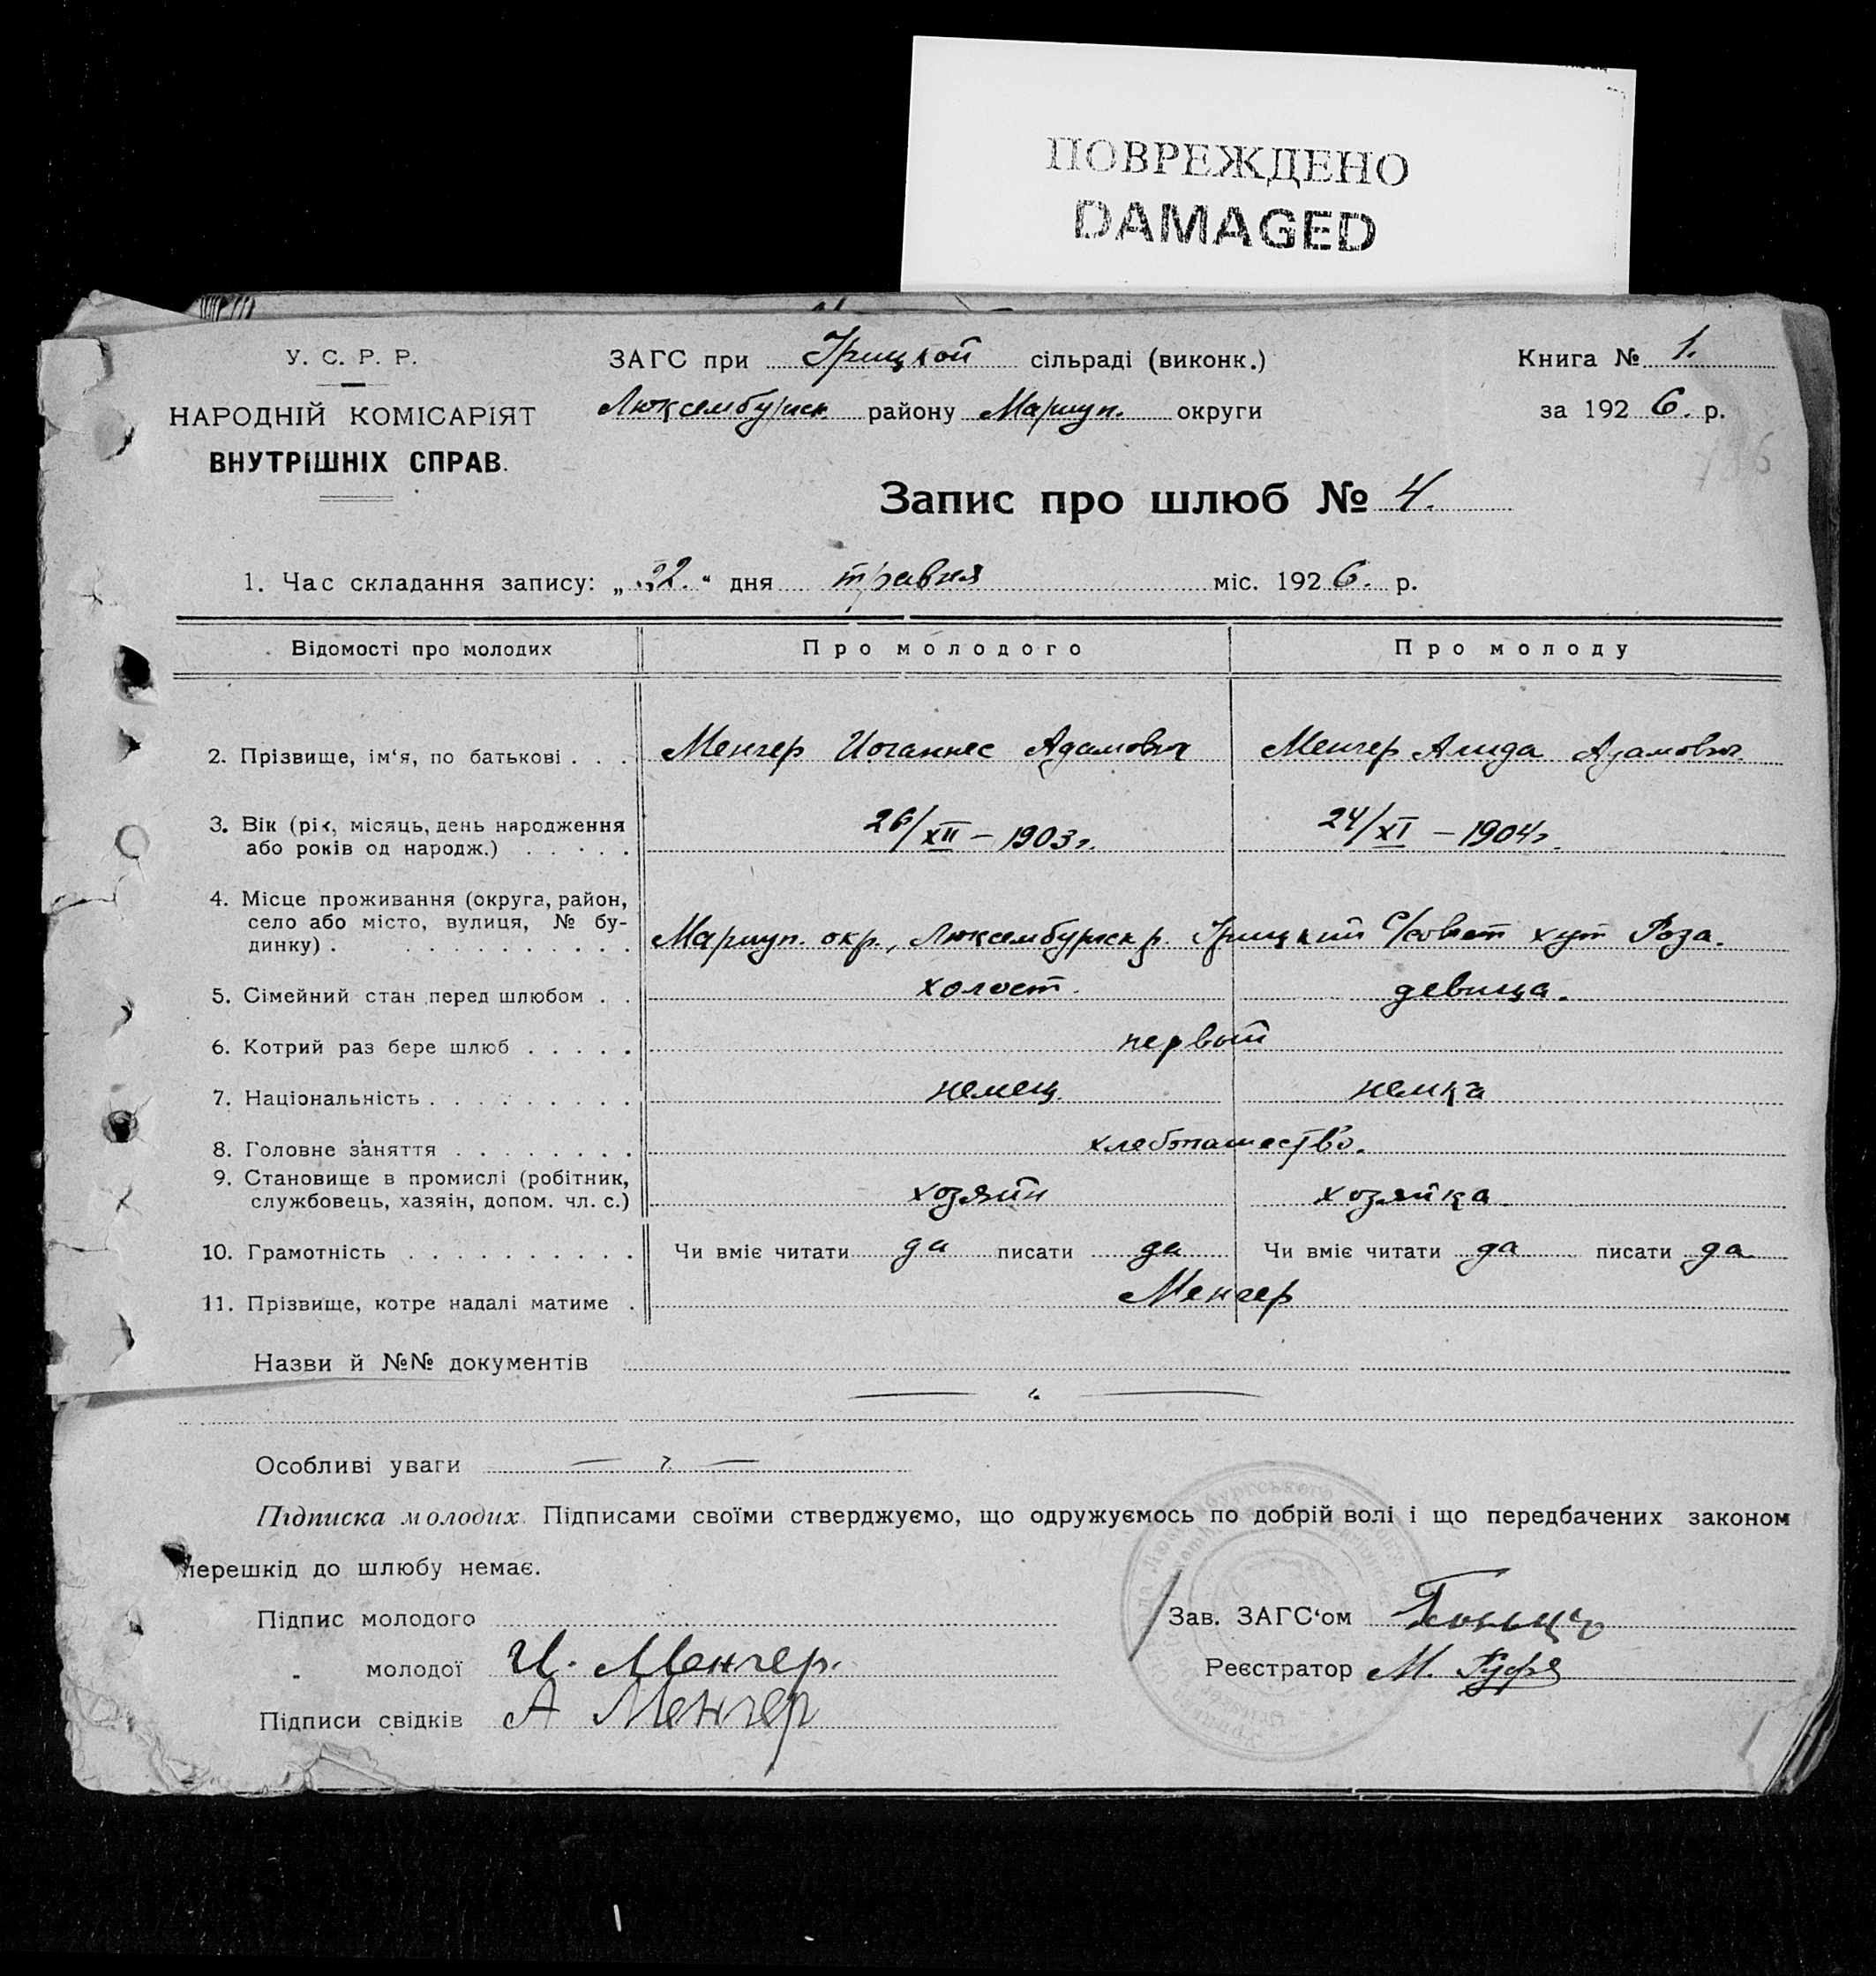 ПОВРЕЖДЕНО
DAMAGED
У. С. Р. Р.
НАРОДНІЙ КОМІСАРІЯТ
ВНУТРІШНІХ СПРАВ.
ЗАГС при Урицкой сільраді (виконк.)
Люксембургск. району Мариуп. округи
Книга № 1.
за 1926. р.
786
Запис про шлюб № 4.
1. Час складання запису: „22.“ дня травня міс. 1926. р.
Відомості про молодих Про молодого Про молоду
2. Прізвище, ім‘я, по батькові . . . Менгер Иоганнес Адамович Менгер Алида Адамович.
3. Вік (рік, місяць, день народження
або років од народж.) . . . . . 26/XII – 1903 г. 24/XI – 1904 г.
4. Місце проживання (округа, район,
село або місто, вулиця, № бу-
динку) . . . . . . . . . . . Мариуп. окр., Люксембургск р. Урицкий С/совет хут Роза.
5. Сімейний стан перед шлюбом . . холост. девица.
6. Котрий раз бере шлюб . . . . . первый
7. Національність . . . . . . . . . немец. немка
8. Головне заняття . . . . . . . . хлебопашество.
9. Становище в промислі (робітник,
службовець, хазяін, допом. чл. с.) хозяин хозяйка
10. Грамотність . . . . . . . . . . Чи вміє читати да писати да Чи вміє читати да писати да
11. Прізвище, котре надалі матиме . Менгер
Назви й №№ документів
Особливі уваги
Підписка молодих. Підписами своїми стверджуємо, що одружуємось по добрій волі і що передбачених законом
перешкід до шлюбу немає.
Підпис молодого
Зав. ЗАГС‘ом
„ молодої И. Менгер.
Реєстратор М.
Підписи свідків А Менгер